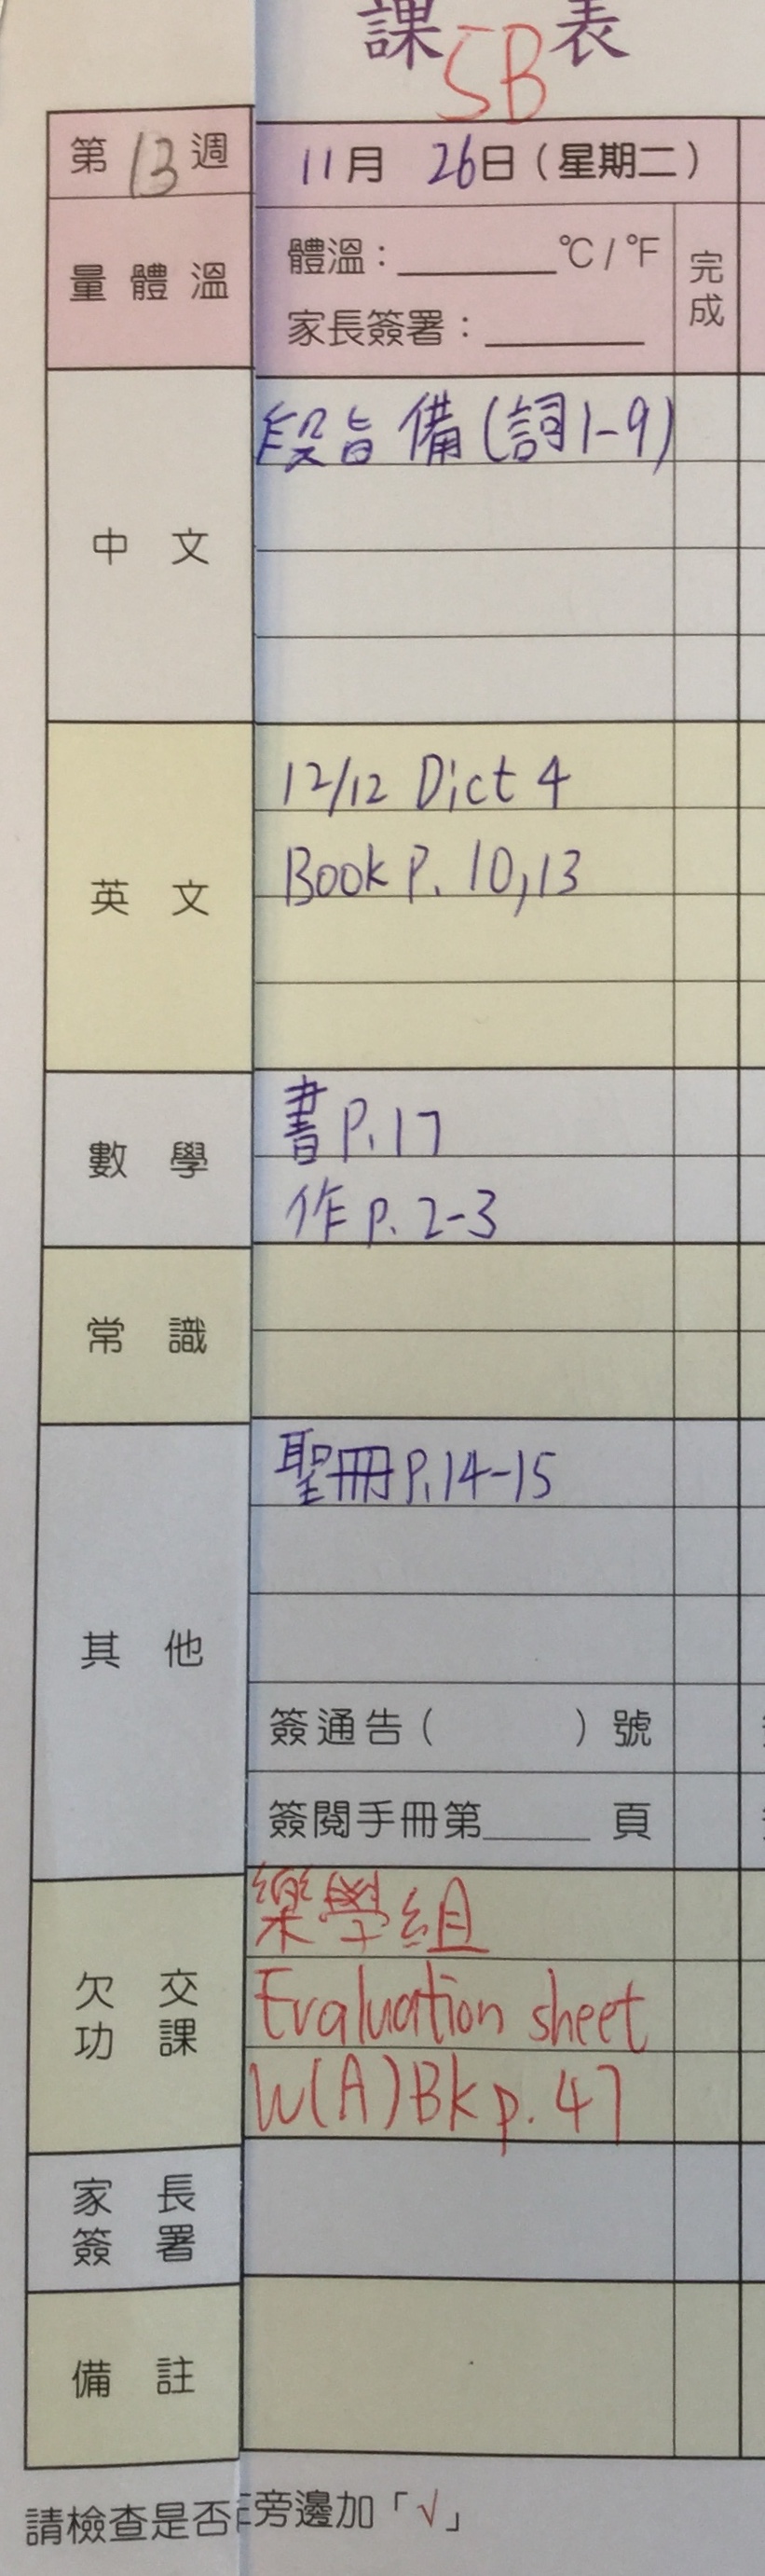 課 5B 表
第 13 週 11月 26日(星期二)
量 體 溫
體溫:________°C / °F
家長簽署:________
完成
中 文
段旨 備(詞1-9)
英 文
12/12 Dict 4
Book P. 10,13
數 學
書 P.17
作 P. 2-3
常 識
其 他
聖冊P.14-15
簽通告( )號
簽閱手冊第______頁
欠 交
功 課
樂學組
Evaluation sheet
W(A)Bk p. 47
家 長
簽 署
備 註
請檢查是否
旁邊加「√」